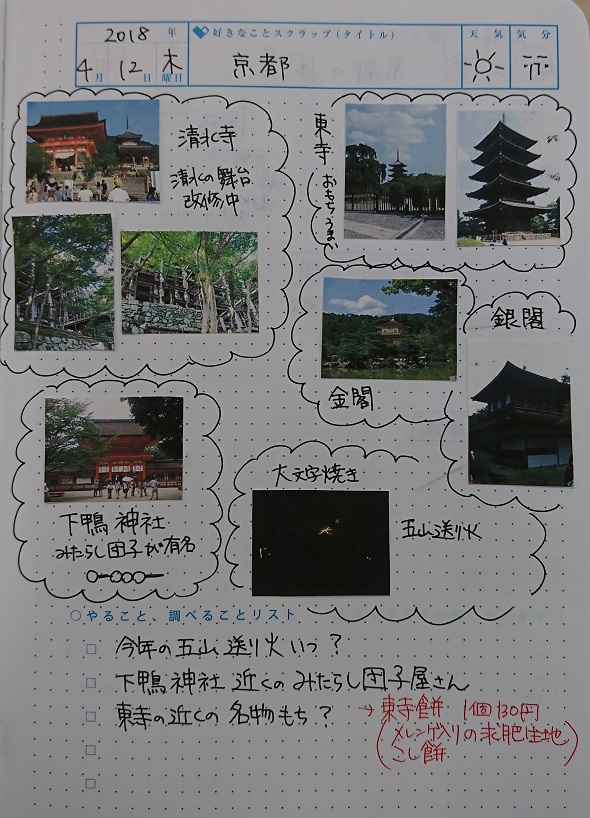 2018 年
4月 12日 木曜日
好きなことスクラップ(タイトル)
京都
天気
気分
清水寺
清水の舞台
改修中
東寺
おもちうまい
金閣
銀閣
下鴨神社
みたらし団子が有名
大文字焼き
五山送り火
○やること、調べることリスト
今年の五山送り火いつ?
下鴨神社近くのみたらし団子屋さん
東寺の近くの名物もち?
→東寺餅 1個130円
(メレンゲ入りの求肥生地
こし餅)